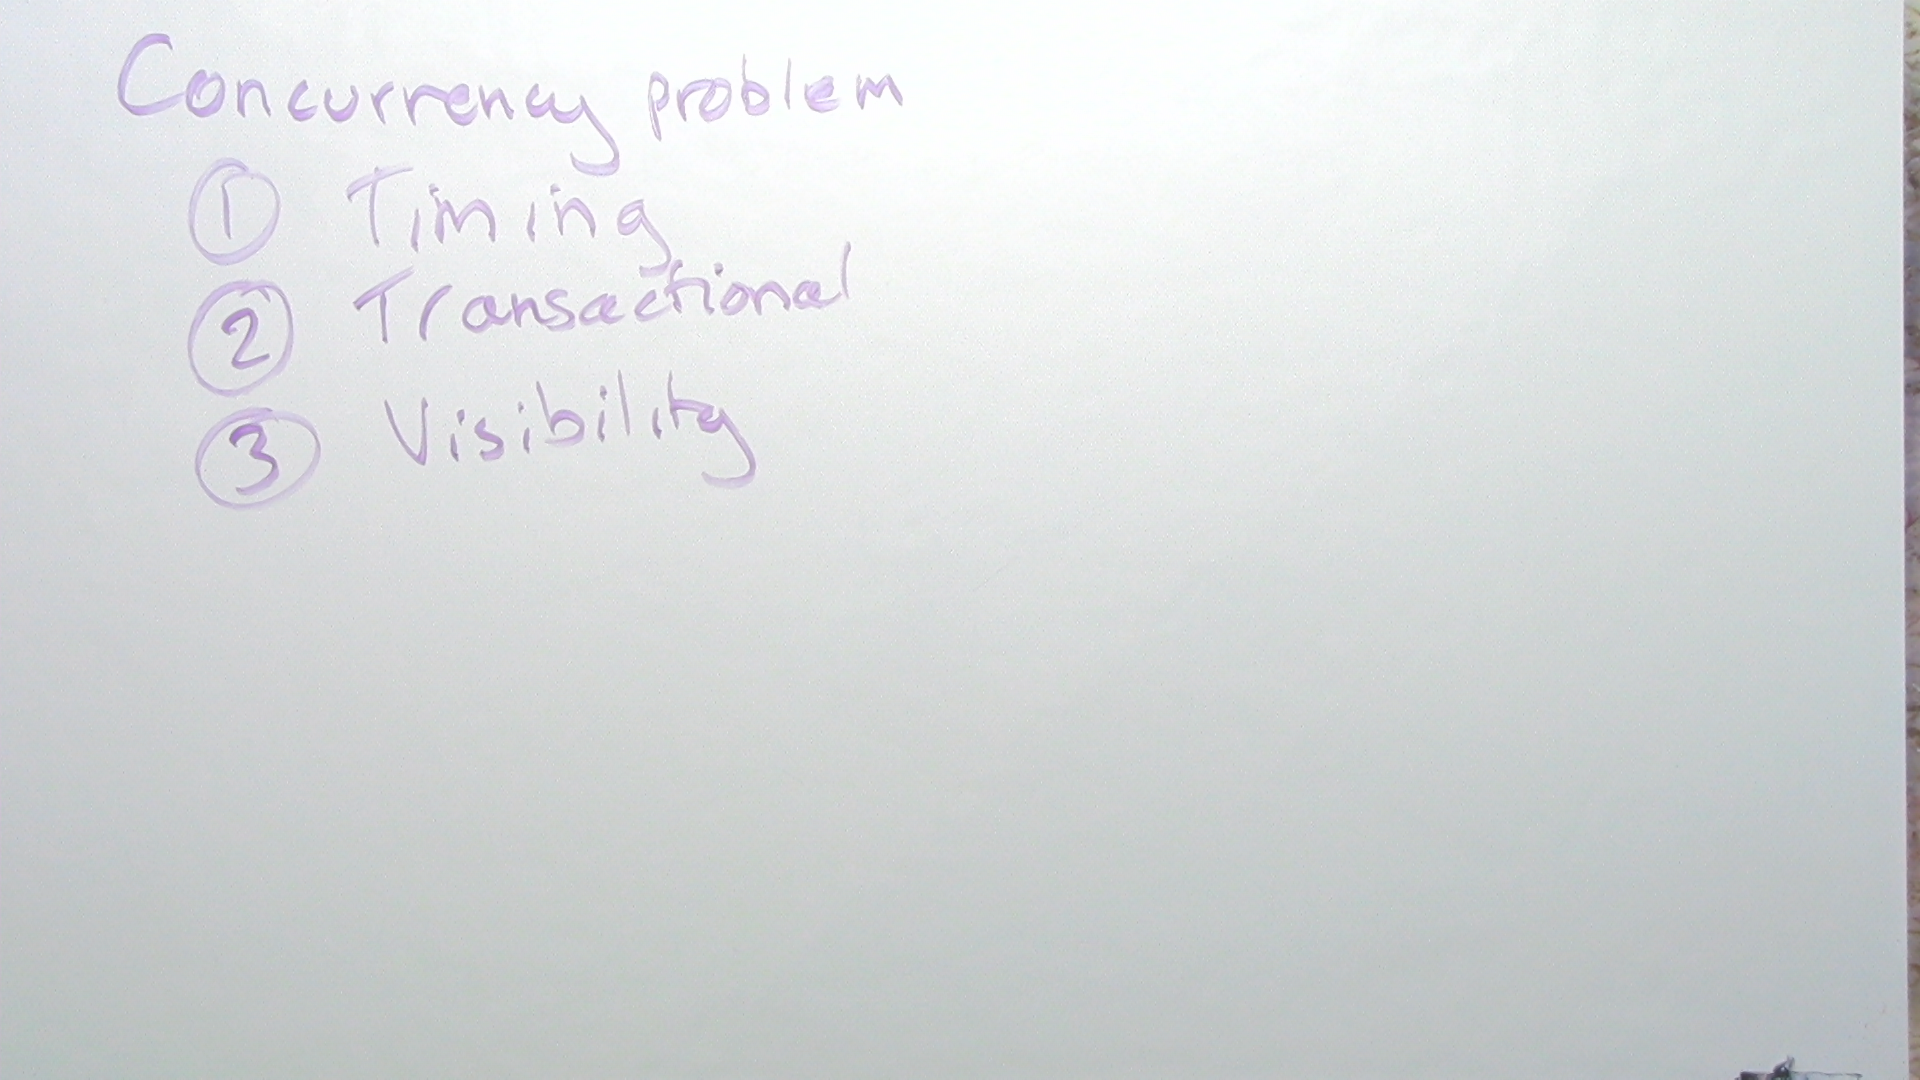 Concurrency problem
① Timing
② Transactional
③ Visibility